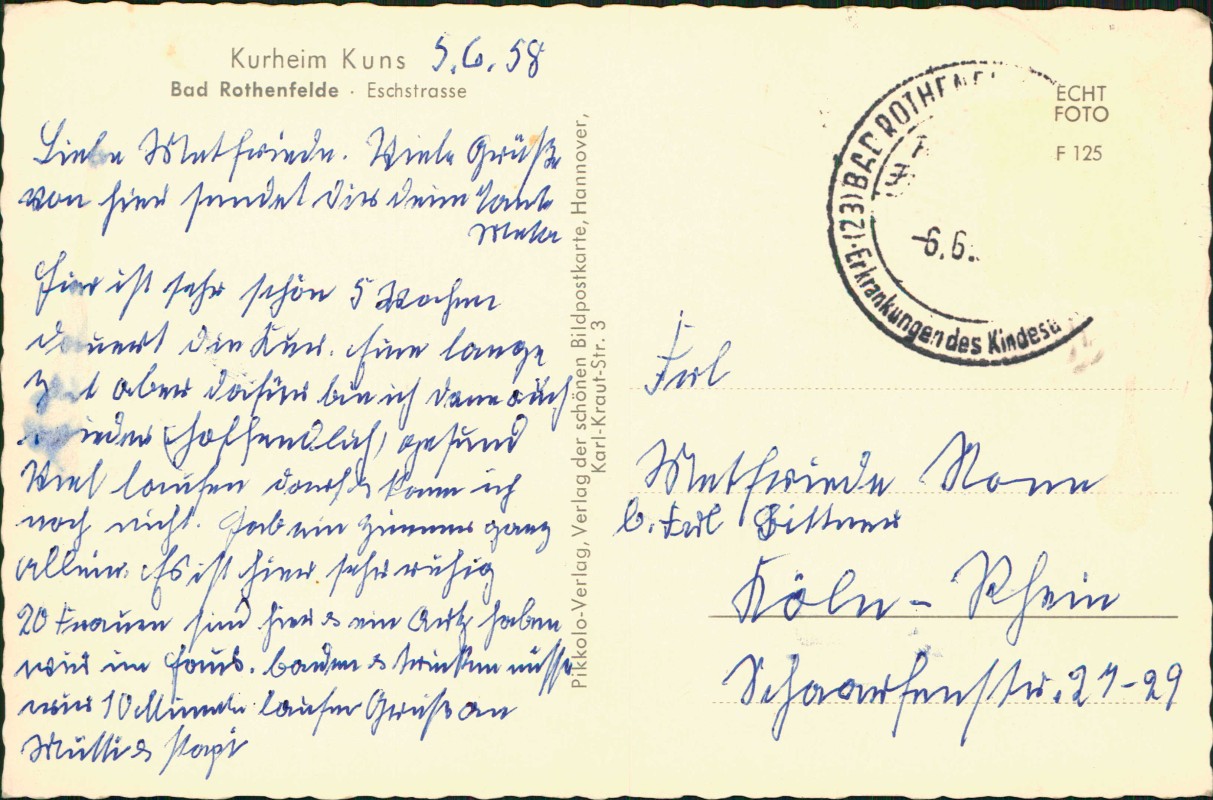 Kurheim Kuns 5.6.58
Bad Rothenfelde · Eschstrasse
Liebe Metfriede. Viele Grüße
von hier sendet dir deine Tante
Meta
Hier ist sehr schön 5 Wochen
dauert die Kur. Eine lange
Zeit aber dafür bin ich dann auch
wieder (hoffendlich) gesund
Viel laufen darf & kann ich
noch nicht. Hab ein Zimmer ganz
allein. Es ist hier sehr ruhig
20 Frauen sind hier & ein Artz haben
wir im Haus. baden & trinken müsse
wir 10 Minuten laufen Grüße an
Mutti &
Pikkolo-Verlag, Verlag der schönen Bildpostkarte, Hannover,
Karl-Kraut-Str. 3
(23) BAD ROTHENFEL
Erkrankungen des Kindesa
-6.6.
ECHT
FOTO
F 125
Frl
Metfriede Nonn
b. Frl Bittner
Köln - Rhein
27-29